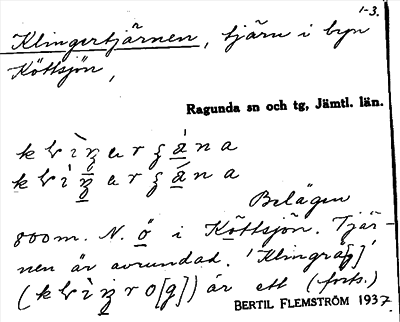 1-3.
Klingertjärnen, tjärn i byn
Köttsjön,
Ragunda sn och tg, Jämtl. län.
Belägen
800 m. N. ö i Köttsjön. Tjär-
nen är avrundad. 'Klingra[g]'
är ett (forts.)
BERTIL FLEMSTRÖM 1937.